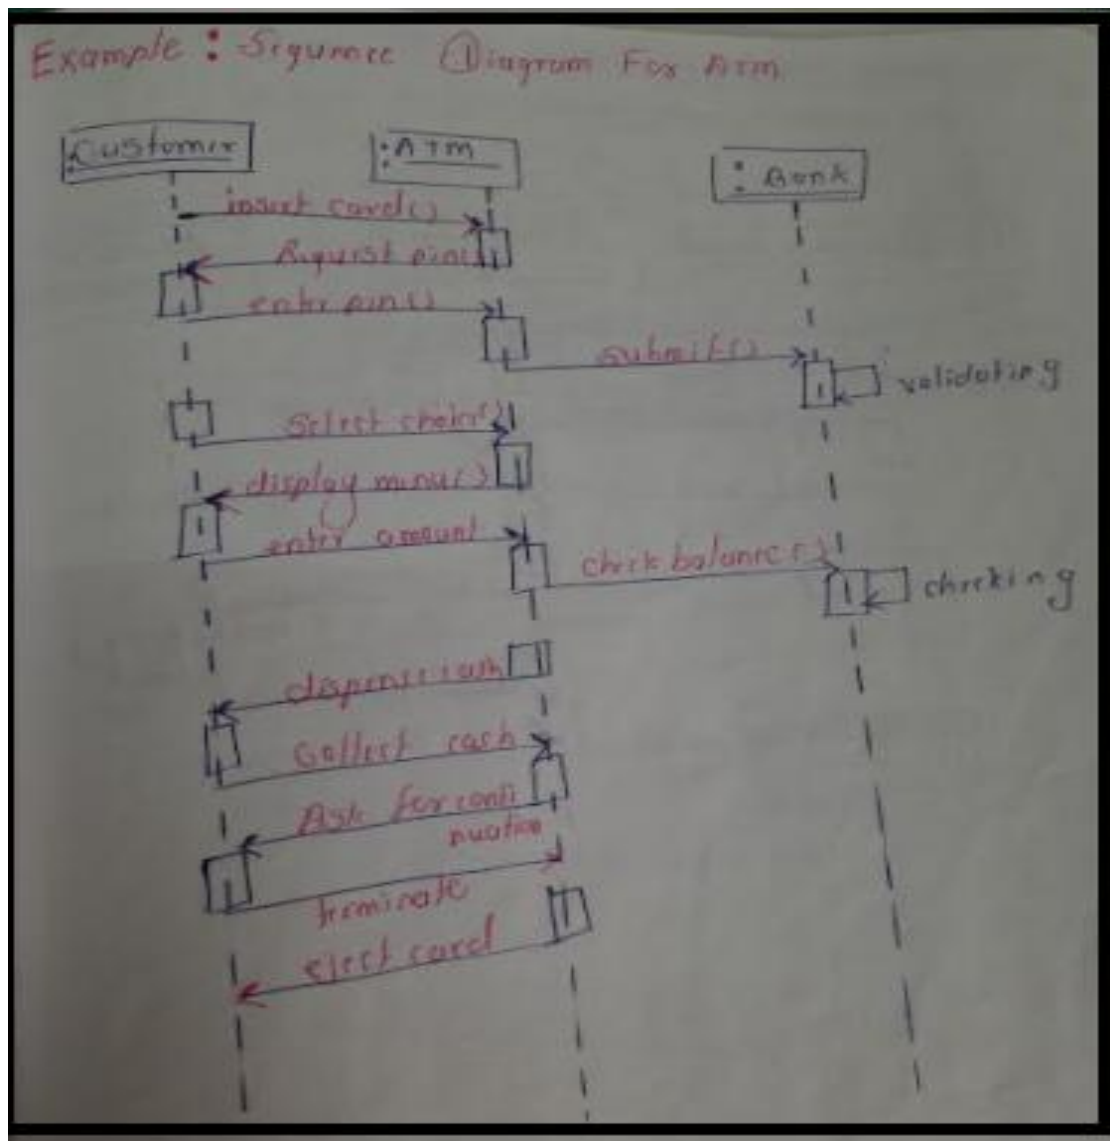 Example : Sequence Diagram For ATM
:Customer
:ATM
: Bank
insert card()
Request pin()
enter pin()
submit()
validating
Select choice()
display menu()
enter amount
check balance()
checking
dispense cash
Collect cash
Ask for conti
nuation
terminate
eject card